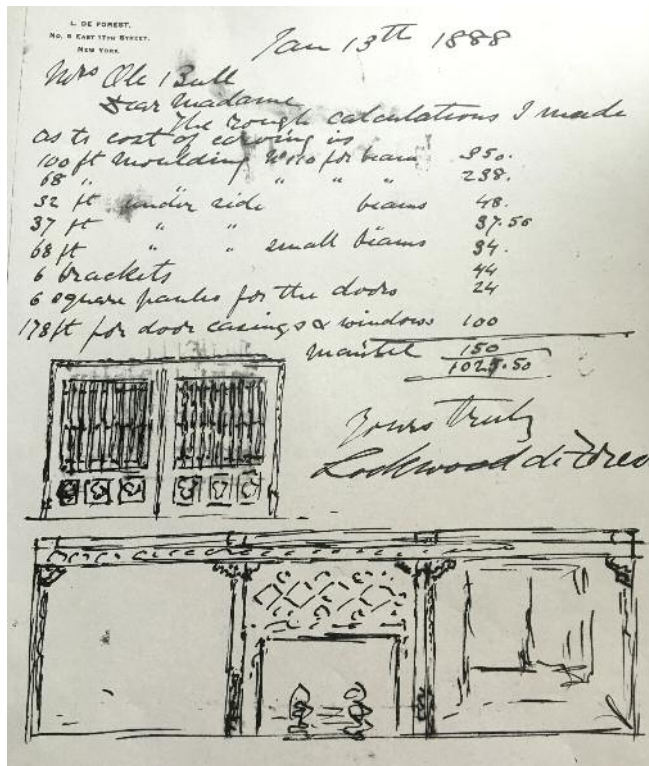 L. DE FOREST.
No. 9 EAST 17TH STREET.
NEW YORK.
Jan 13th 1888
Mrs Ole Bull
Dear Madame
The rough calculations I made
as to cost of carving is
100 ft moulding for beam 350.
68 " " " " 238.
32 ft under side beams 48.
37 ft " " 37.50
68 ft " " small beams 34.
6 brackets 44
6 square panles for the doors 24
178 ft for door casings & windows 100
mantel 150
1025.50
Yours truly
Lockwood de Fores